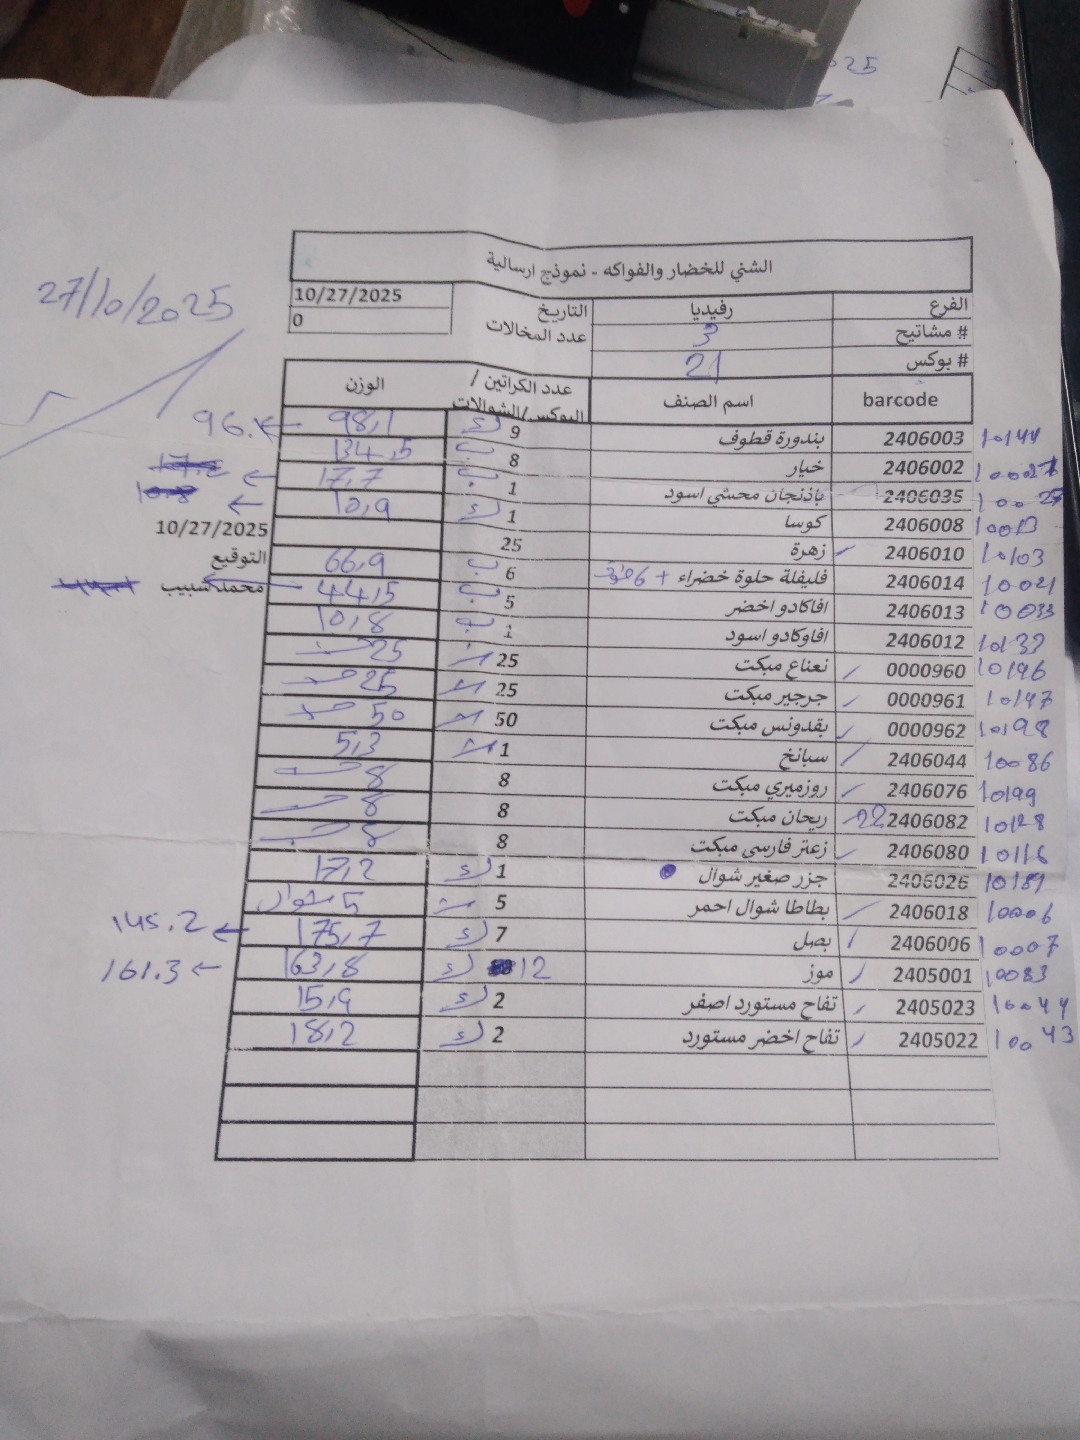 الشني للخضار والفواكه - نموذج ارسالية
27/10/2025
الفرع رفيديا التاريخ 10/27/2025
# مشاتيح 3 عدد المخالات 0
# بوكس 21
barcode اسم الصنف عدد الكراتين / البوكس/الشوالات الوزن
10144 2406003 بندورة قطوف 9 ك 98,1
2406002 خيار 8 ب 134,5
2406035 باذنجان محشي اسود 1 ب 17,7
2406008 كوسا 1 ك 10,9
10103 2406010 زهرة 25 10/27/2025
10021 2406014 فليفلة حلوة خضراء + 6 ب 66,9 التوقيع
10033 2406013 افاكادو اخضر 5 ب 44,5 محمد سبيب
2406012 افاوكادو اسود 1 ب 10,8
10196 0000960 نعناع مبكت 25 25
10197 0000961 جرجير مبكت 25 25
10198 0000962 بقدونس مبكت 50 50
10086 2406044 سبانخ 1 5,3
10199 2406076 روزميري مبكت 8 8
10128 2406082 ريحان مبكت 8 8
10116 2406080 زعتر فارسي مبكت 8 8
2406026 جزر صغير شوال 1 ك 17,2
10006 2406018 بطاطا شوال احمر 5 5 شوال
10007 2406006 بصل 7 ك 175,7 145.2
10083 2405001 موز 12 ك 163,8 161.3
10044 2405023 تفاح مستورد اصفر 2 ك 15,9
10043 2405022 تفاح اخضر مستورد 2 ك 18,2